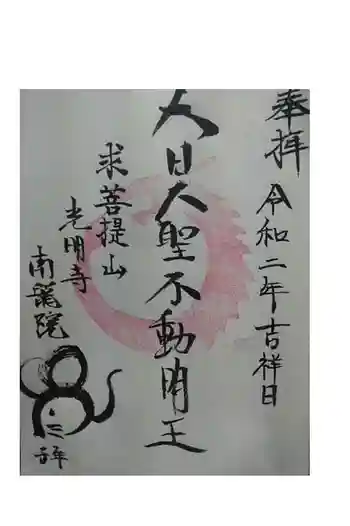 奉拝
令和二年吉祥日
大日大聖不動明王
求菩提山
光明寺
南龍院